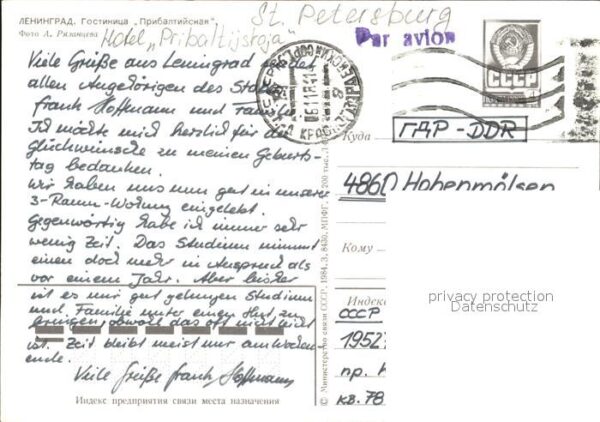 ЛЕНИНГРАД. Гостиница „Прибалтийская“
Фото А. Рязанцева
St. Petersburg
Hotel „Pribaltijskaja“
Par avion
Viele Grüße aus Leningrad sendet
allen Angehörigen des
Frank Hoffmann und Fam
Ich möchte mich herzlich für die
Glückwünsche zu meinem Geburts-
tag bedanken.
Wir haben uns nun gut in unserer
3-Raum-Wohnung eingelebt.
Gegenwärtig habe ich immer sehr
wenig Zeit. Das Studium nimmt
einen doch mehr in Anspruch als
vor einem Jahr. Aber bisher
ist es mir gut gelungen Studium
und Familie unter einen Hut zu
bringen, obwohl das oft nicht leicht
ist. Zeit bleibt meist nur am Wochen-
ende.
Viele Grüße Frank Hoffmann
Индекс предприятия связи места назначения
© Министерство связи СССР, 1984. З. 8430. МПФГ.
СССР
Куда
ГДР-DDR
4860 Hohenmölsen
Кому
Индекс
СССР
1952
пр.
кв. 78
privacy protection
Datenschutz